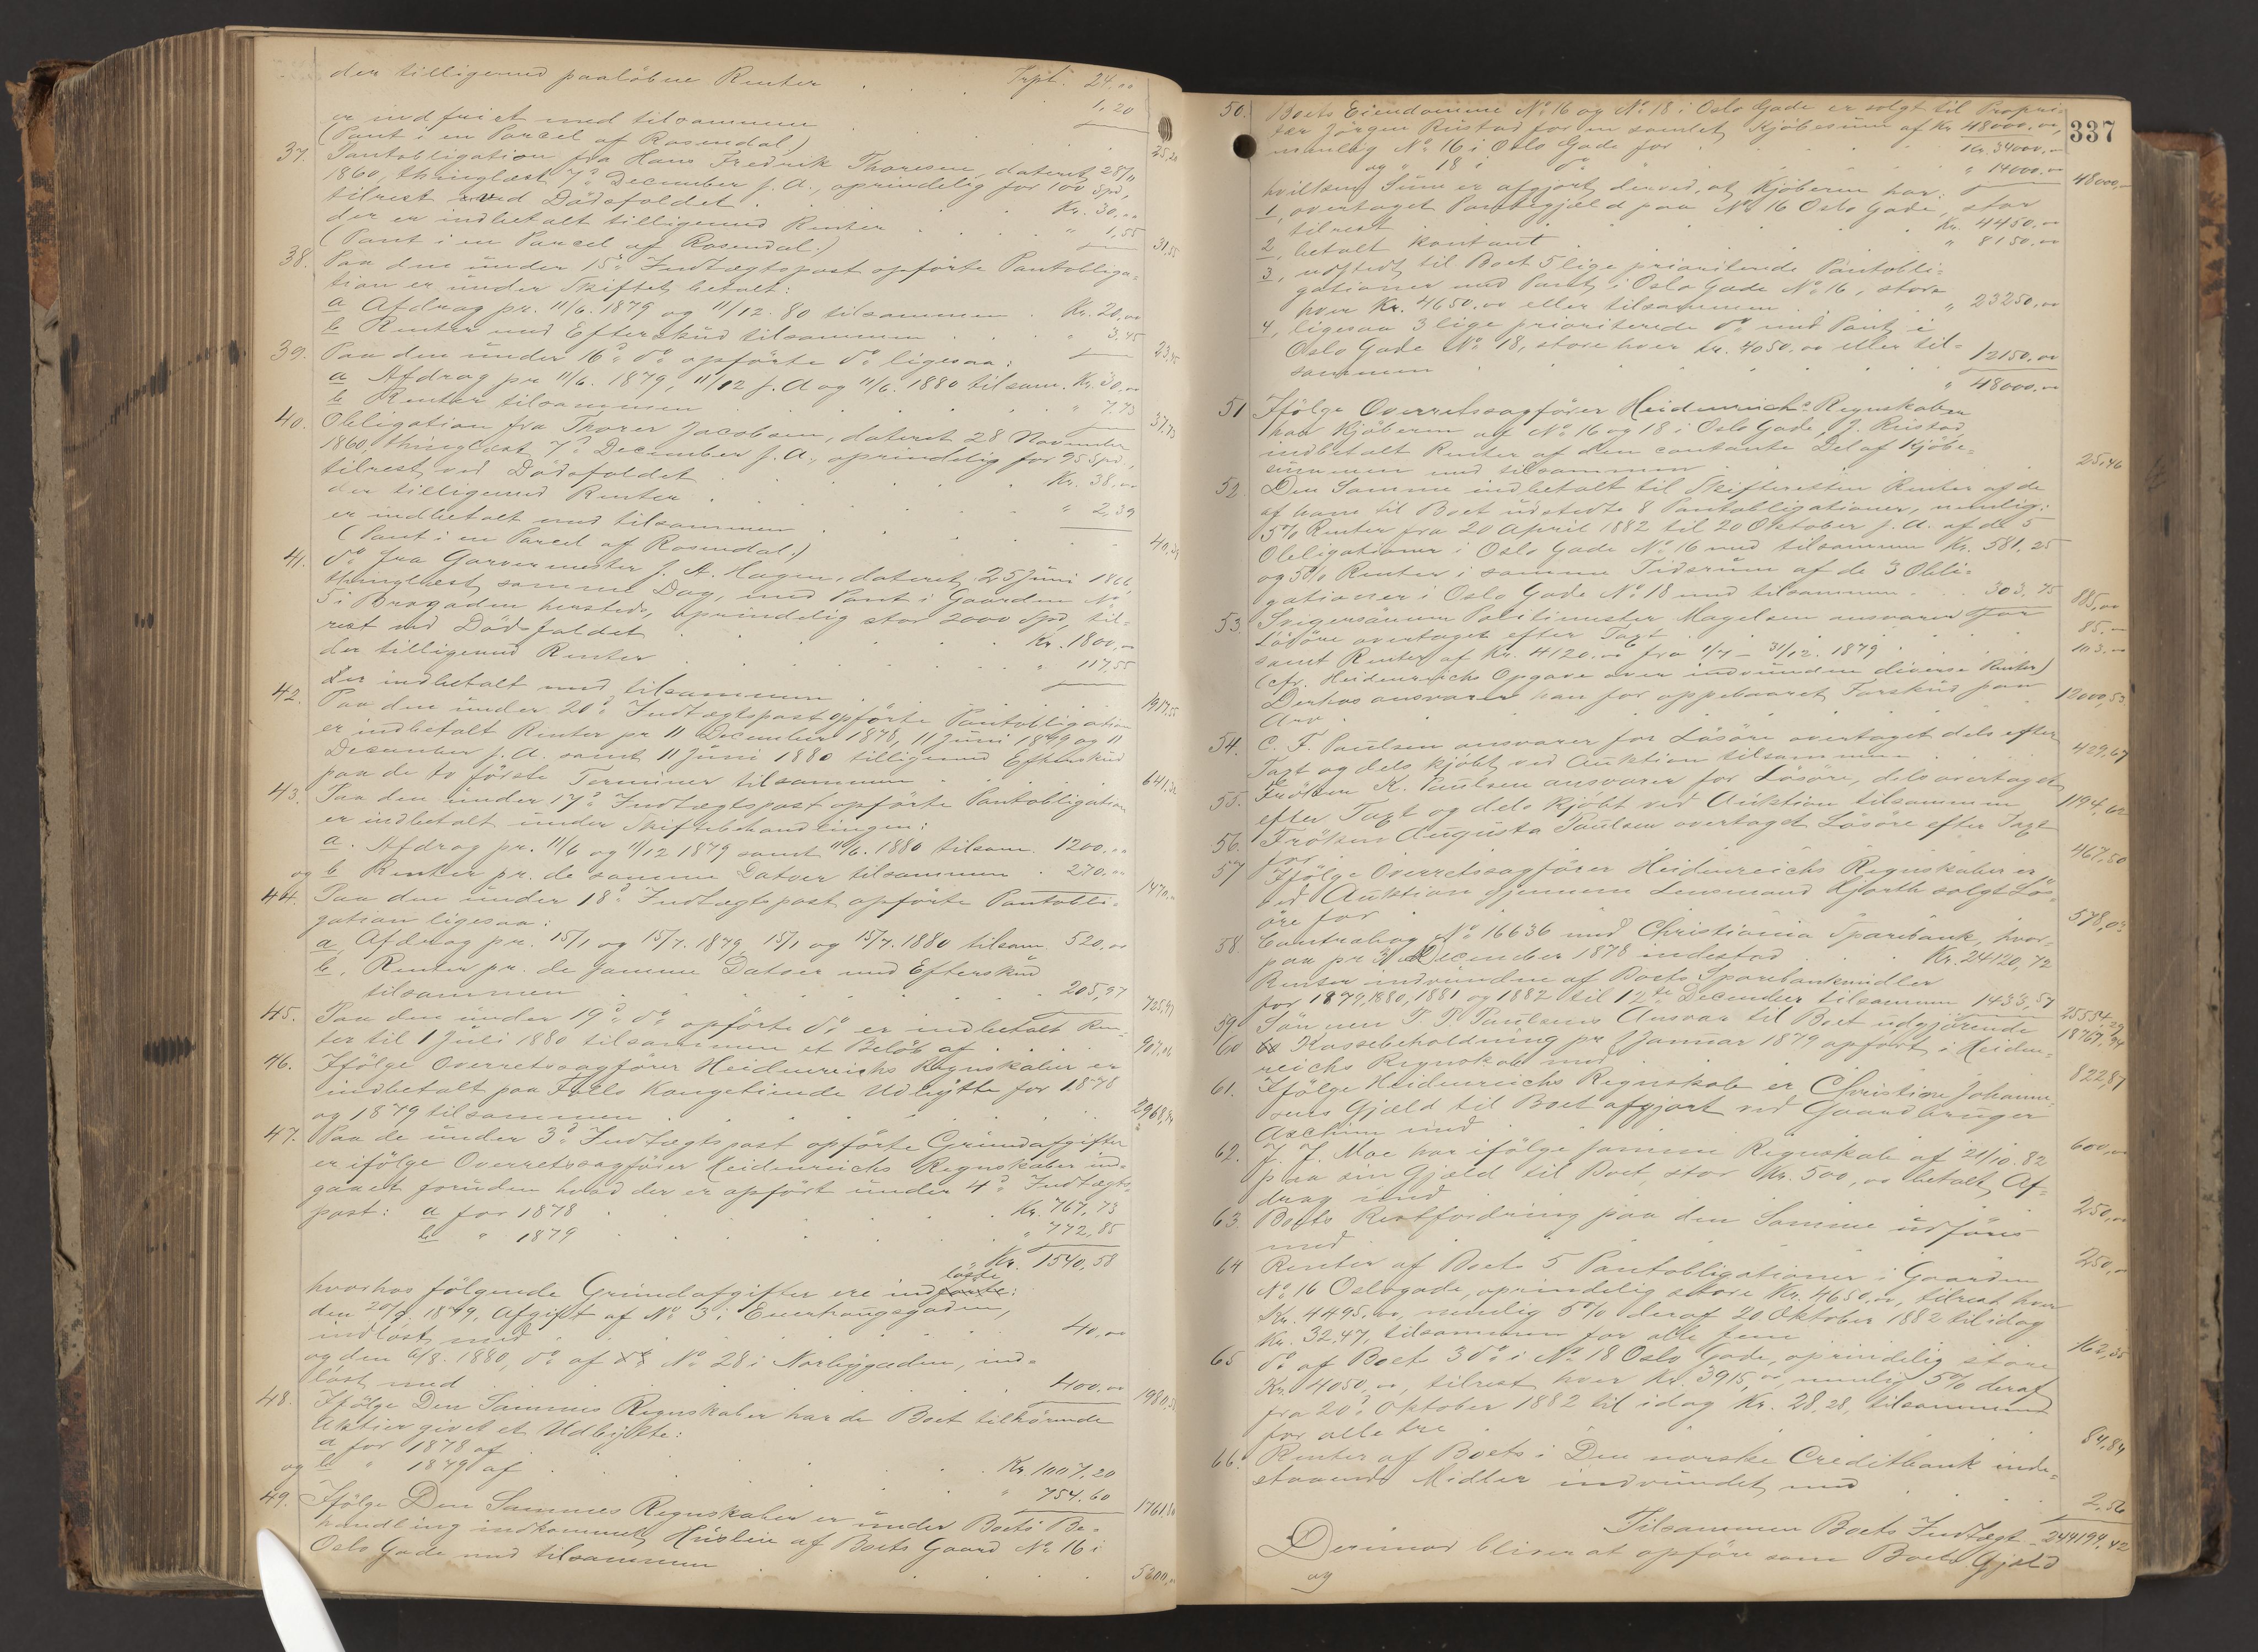 der tilligemed paaløbne Renter . . Trpt. 24,00
1,20
er indfriet med tilsammen . . . 25,20
(Pant i en Parcel af Rosendal.)
37. Pantobligation fra Hans Fredrik Thoresen, dateret 28/11
1860, thinglæst 7d. December s. A., oprindelig for 100 Spd,
tilrest ved Dødsfaldet . . . Kr. 30,00
der er indbetalt tilligemed Renter . . . " 1,55
(Pant i en Parcel af Rosendal.) 31,55
38. Paa den under 15d. Indtægtspost opførte Pantobliga-
tion er under Skiftet betalt:
a Afdrag pr. 11/6. 1879 og 11/12. 80 tilsammen . Kr. 20,00
b Renter med Efterskud tilsammen . . " 3,45
23,45
39. Paa den under 16d. do opførte do ligesaa:
a Afdrag pr 11/6. 1879, 11/12 s. A og 11/6. 1880 tilsam. Kr. 30,00
b Renter tilsammen . . . " 7,73
37,73
40. Obligation fra Thorer Jacobsen, dateret 28 November
1860, thinglæst 7d. December s. A., oprindelig for 95 Spd.,
tilrest ved Dødsfaldet . . . Kr. 38,00
der tilligemed Renter . . . " 2,39
er indbetalt med tilsammen . . . 40,39
(Pant i en Parcel af Rosendal.)
41. do fra Garvermester J. A. Hagen, dateret 25 Juni 1866
thinglæst samme Dag, med Pant i Gaarden No
5 i Brogaden hersteds, oprindelig stor 2000 Spd, til-
rest ved Dødsfaldet . . . Kr. 1800,00
der tilligemed Renter . . . " 117,55
Er indbetalt med tilsammen . . . 1917,55
42. Paa den under 20d. Indtægtspost opførte Pantobligation
er indbetalt Renter pr 11 December 1878, 11 Juni 1879 og 11
December s. A. samt 11 Juni 1880 tilligemed Efterskud
paa de to første Terminer tilsammen . . . 641,
43. Paa den under 17d. Indtægtspost opførte Pantobligation
er indbetalt under Skiftebehandlingen:
a. Afdrag pr. 11/6 og 11/12 1879 samt 11/6. 1880 tilsam. 1200,00
og b Renter pr. de samme Datoer tilsammen . 270,00
1470,00
44. Paa den under 18d. Indtægtspost opførte Pantobli-
gation ligesaa:
a, Afdrag pr. 15/1 og 15/7. 1879, 15/1 og 15/7. 1880 tilsam. 520,00
b, Renter pr. de samme Datoer med Efterskud
tilsammen . . . 205,97
725,97
45. Paa den under 19d. do opførte do er indbetalt Ren-
ter til 1 Juli 1880 tilsammen et Beløb af . . . 907,
46. Ifølge Overretssagfører Heidenreichs Regnskaber er
indbetalt paa Follo Kongetiende Udbytte for 1878
og 1879 tilsammen . . . 2968,
47. Paa de under 3d. Indtægtspost opførte Grundafgifter
er ifølge Overretssagfører Heidenreichs Regnskaber ind-
gaaet foruden hvad der er opført under 4d. Indtægts-
post: a for 1878 . . . Kr. 767,73
b " 1879 . . . " 772,85
Kr. 1540,58
hvorhos følgende Grundafgifter ere indløste:
den 20/9. 1879, Afgift af No 3 i Enerhaugsgaden,
indløst med . . . 40,00
og den 6/8. 1880, do af No 28 i Norbygaden, ind-
løst med . . . 400,00
1980,58
48. Ifølge Den Sammes Regnskaber har de Boet tilhørende
Aktier givet et Udbytte:
a for 1878 af . . . Kr. 1007,20
og b " 1879 af . . . " 754,60
1761,80
49. Ifølge Den Sammes Regnskaber er under Boets Be-
handling indkommet Husleie af Boets Gaard No 16 i
Oslo Gade med tilsammen . . . 5200,00
337
50. Boets Eiendomme No 16 og No 18 i Oslo Gade er solgt til Propri-
tær Jørgen Rustad for en samlet Kjøbesum af Kr 48000,00,
nemlig No 16 i Oslo Gade for . . . Kr. 34000,00
og " 18 i do . . . " 14000,00
48000,00
hvilken Sum er afgjort derved, at Kjøberen har:
1, overtaget Pantegjæld paa No 16 Oslo Gade, stor
tilrest . . . Kr. 4450,00
2, betalt kontant . . . " 8150,00
3, udstedt til Boet 5 lige prioriterede Pantobli-
gationer med Pant i Oslo Gade No 16, store
hver Kr. 4650,00 eller tilsammen . . . " 23250,00
4, ligesaa 3 lige prioriterede do med Pant i
Oslo Gade No 18, store hver Kr. 4050,00 eller til-
sammen . . . 12150,00
" 48000,00
51 Ifølge Overretssagfører Heidenreichs Regnskaber
har Kjøberen af No 16 og 18 i Oslo Gade, J. Rustad
indbetalt Renter af den contante Del af Kjøbe-
summen med tilsammen . . . 25,46
52. Den Samme indbetalt til Skifteretten Renter af de
af ham til Boet udstedte 8 Pantobligationer, nemlig:
5% Renter fra 20 April 1882 til 20 Oktober s. A. af de 5
Obligationer i Oslo Gade No 16 med tilsammen Kr. 581,25
og 5% Renter i samme Tidsrum af de 3 Obli-
gationer i Oslo Gade No 18 med tilsammen . . 303,75
885,00
53. Svigersønnen Politimester Magelsen ansvarer for
Løsøre overtaget efter Taxt . . . 85,00
samt Renter af Kr. 4120,00 fra 1/7 - 31/12. 1879 . . 103,00
(cfr. Heidenreichs Opgave over indvundne diverse Renter)
Derhos ansvarer han for oppebaaret Forskud paa
Arv . . . 12000,53
54. C. F. Paulsen ansvarer for Løsøre overtaget dels efter
Taxt og dels kjøbt ved Auktion tilsammen . . 429,67
55. Frøken K. Paulsen ansvarer for Løsøre, dels overtaget
efter Taxt og dels kjøbt ved Auktion tilsammen 1194,62
56. Frøken Augusta Paulsen overtaget Løsøre efter Taxt
for . . . 467,50
57 Ifølge Overretssagfører Heidenreichs Regnskaber er
ved Auktion gjennem Lensmand Hjorth solgt Løs-
øre for . . . 578,03
58. Contrabog No 16636 med Christiania Sparebank, hvor-
paa pr 31 December 1878 indestod . . . Kr. 24120,72
Renter indvunden af Boets Sparebankmidler
for 1879, 1880, 1881 og 1882 til 12te December tilsammen 1433,57
25554,29
59. Sønnen T. P. Paulsens Ansvar til Boet udgjørende 18767,94
60 Kassebeholdning pr 1 Januar 1879 opført i Heiden-
reichs Regnskab med . . . 822,87
61. Ifølge Heidenreichs Regnskab er Christine Johann-
sens Gjæld til Boet afgjort ved Gaardbruger
Aschim med . . . 600,00
62. J. J. Moe har ifølge samme Regnskab af 21/10. 82
paa sin Gjæld til Boet, stor Kr. 500,00 betalt Af-
drag med . . . 250,00
63. Boets Restfordring paa den Samme udføres
med . . . 250,00
64 Renter af Boets 5 Pantobligationer i Gaarden
No 16 Oslogade, oprindelig store Kr. 4650,00, tilrest hver
Kr. 4495,00, nemlig 5% deraf 20 Oktober 1882 til idag
Kr. 32,47, tilsammen for alle fem . . . 162,35
65 do af Boets 3 do i No 18 Oslo Gade, oprindelig store
Kr. 4050,00, tilrest hver Kr. 3915,00, nemlig 5% deraf
fra 20d. Oktober 1882 til idag Kr. 28,28, tilsammen
for alle tre . . . 84,84
66. Renter af Boets i Den norske Creditbank inde-
staaende Midler indvundet med . . . 2,56
Tilsammen Boets Indtægt 244194,42
Derimod bliver at opføre som Boets Gjæld
og